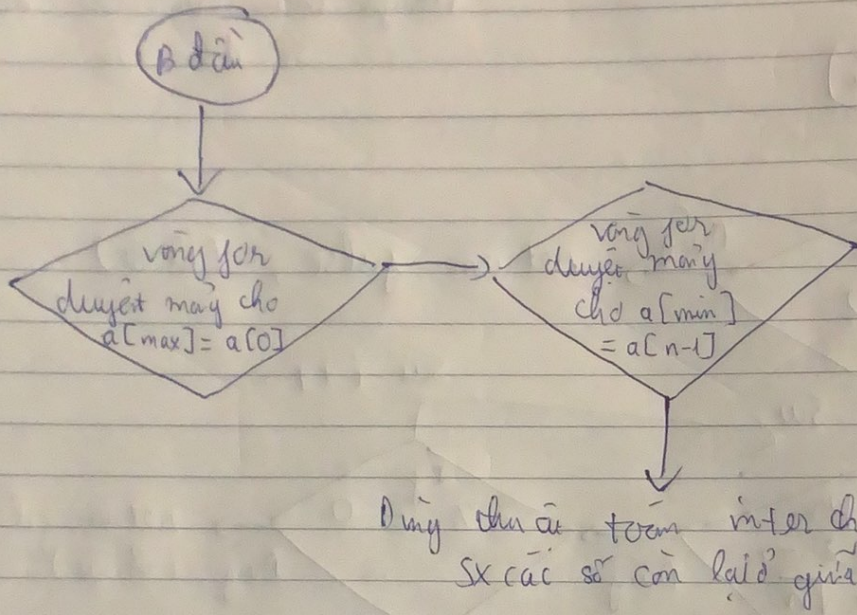 B đầu
vòng for
duyệt mảng cho
a[max] = a[0]
vòng for
duyệt mảng
cho a[min]
= a[n-1]
Dùng thuật toán inter ch
SX các số còn lại ở giữa